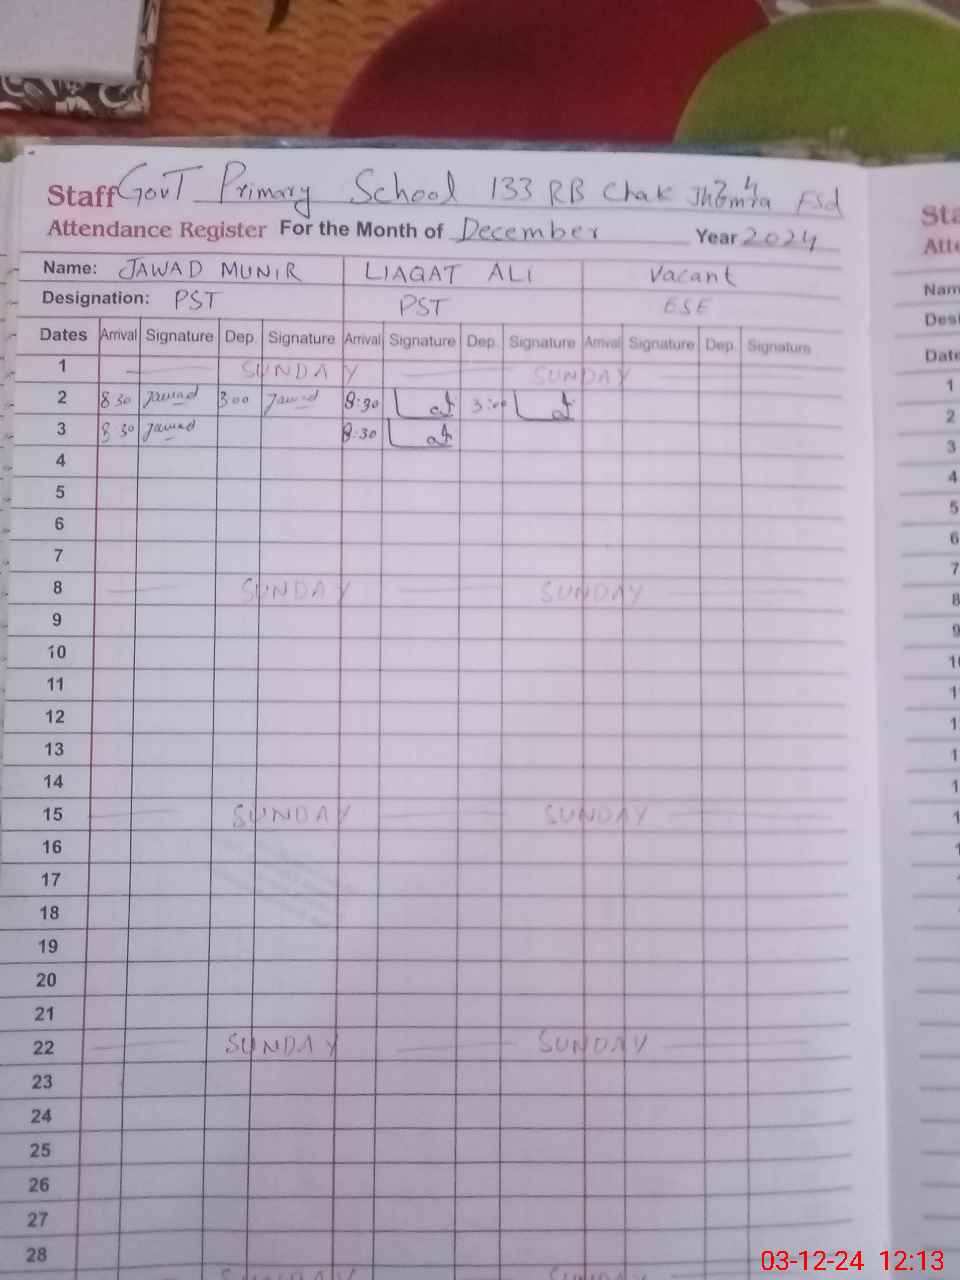 Staff GovT Primary School 133 RB Chak Jhumra Fsd
Attendance Register For the Month of December Year 2024
Name: JAWAD MUNIR LIAQAT ALI Vacant
Designation: PST PST ESE
Dates Arrival Signature Dep. Signature Arrival Signature Dep. Signature Arrival Signature Dep. Signature
1 SUNDAY SUNDAY
2 8 30 Jawad 3 00 Jawad 8:30 3:00
3 8 30 Jawad 8:30
4
5
6
7
8 SUNDAY SUNDAY
9
10
11
12
13
14
15 SUNDAY SUNDAY
16
17
18
19
20
21
22 SUNDAY SUNDAY
23
24
25
26
27
28
SUNDAY SUNDAY
Sta
Atte
Nam
Desi
Date
1
2
3
4
5
6
7
8
9
03-12-24 12:13